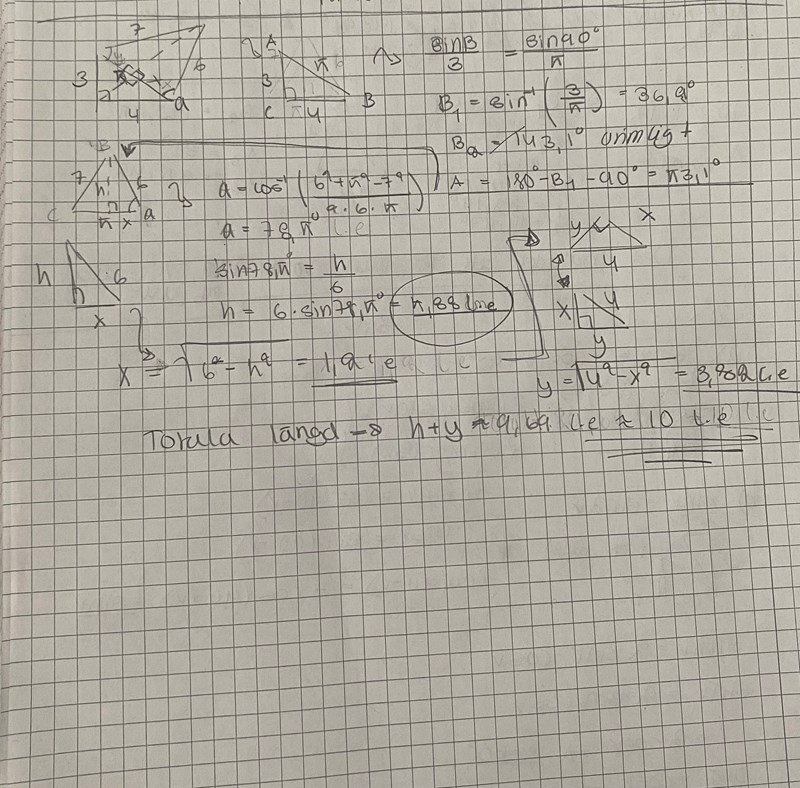 7
3
6
4
a
A
3
5
C
4
B
sinB/3 = sin90°/5
B₁ = sin⁻¹(3/5) = 36,9°
B₂ = 143,1° orimlig
A = 180°-B₁-90° = 53,1°
7
h
6
C
5
x
a
a = cos⁻¹((6²+5²-7²)/(2·6·5))
a = 78,5°
h
6
x
sin78,5° = h/6
h = 6·sin78,5° = 5,88 l.e
x = √(6²-h²) = 1,2 l.e
y
x
4
x
4
y
y = √(4²-x²) = 3,82 l.e
Totala längd → h+y ≈ 9,69 l.e ≈ 10 l.e